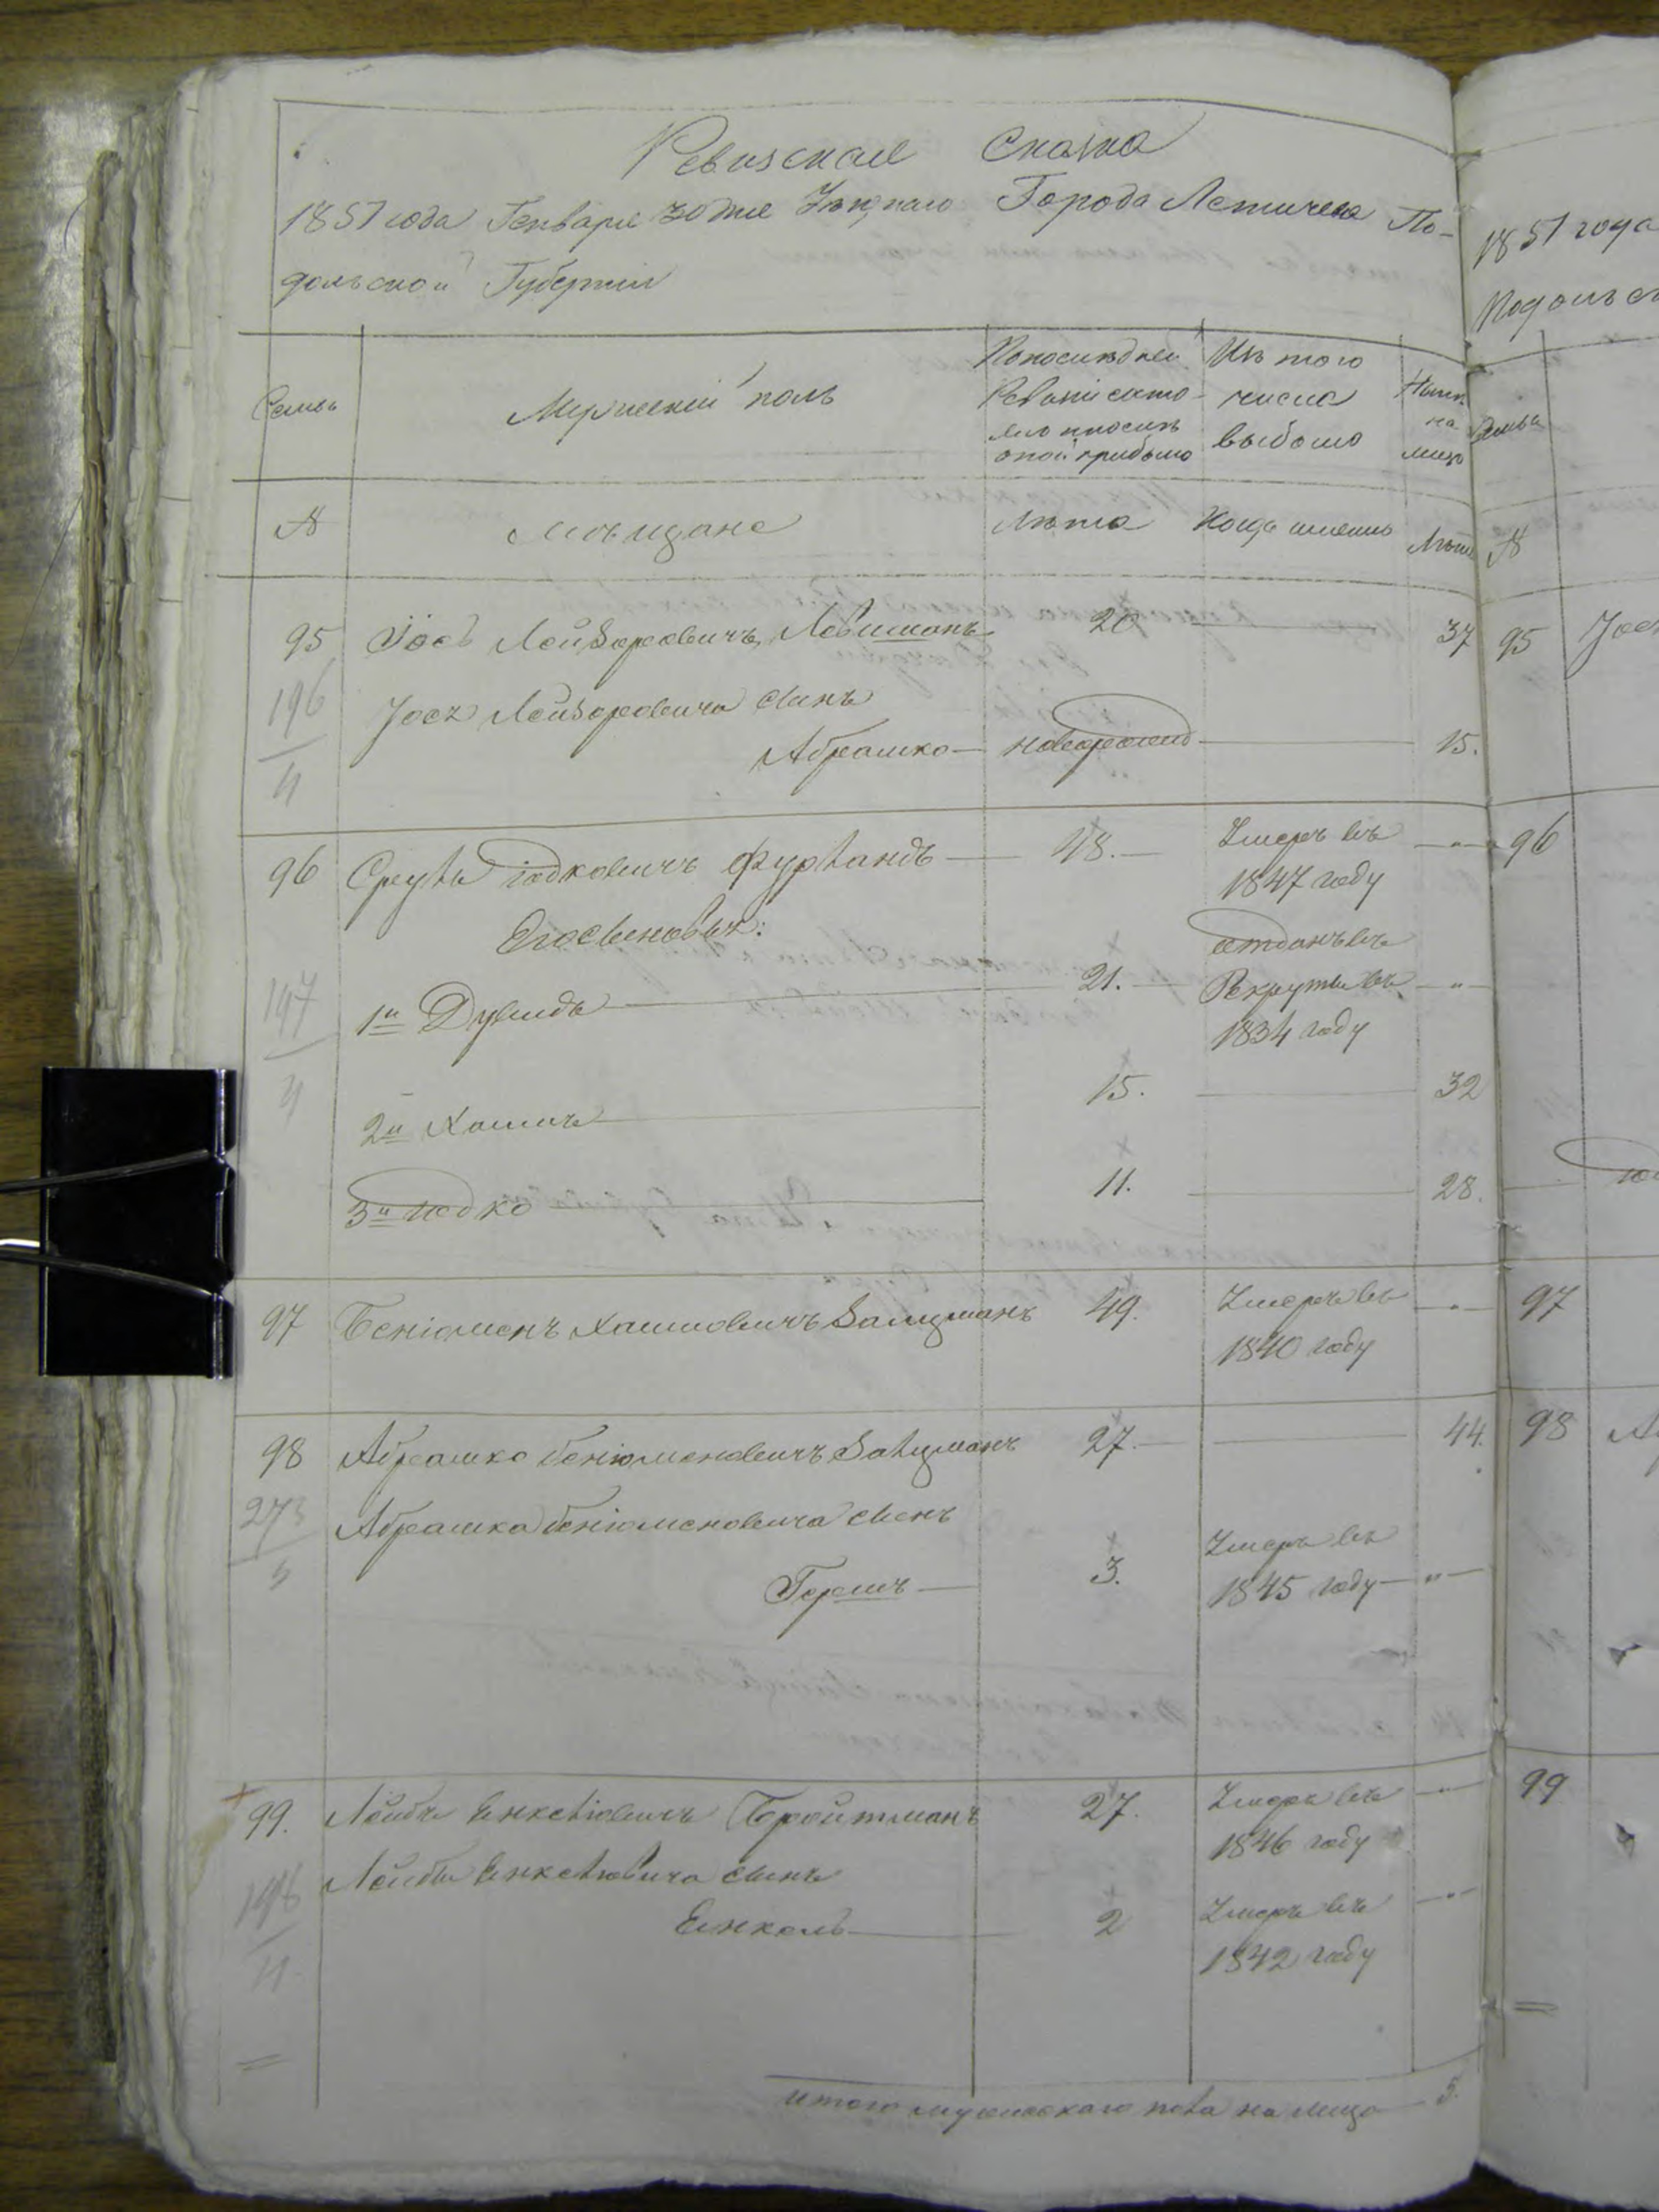 Ревизская Сказка
1851 года Генваря 30 дня Уѣзднаго Города Летичева По-
дольской Губерніи
Семьи
Мужескій полъ
По послѣдней
Ревизіи состо-
яло и послѣ
оной прибыло
Изъ того
числа
выбыло
Нынѣ
на
лицо
№
Мѣщане
Лѣта
Когда именно
Лѣта
95 Іось Лейзоровичъ Левиманъ 20 37
196
4
Іося Лейзоровича сынъ
Абрашко новорожд 15.
96 Сруль Іодковичъ Фурландъ 48. Умеръ въ
1847 году
Его сыновья:
147
4
1й Дувидъ 21. отданъ въ
Рекруты въ
1834 году
2й Хаимъ 15. 32
3й Іодко 11. 28.
97 Беніоменъ Хаимовичъ Залцманъ 49. Умеръ въ
1840 году
98 Абрашко Беніоменовичъ Залцманъ 27. 44.
273
5
Абрашка Беніоменовича сынъ
Гершъ 3. Умеръ въ
1845 году
99. Лейбь Янкеліовичъ Бройтманъ 27. Умеръ въ
1846 году
148
4
Лейбы Янкельовича сынъ
Янкель 2 Умеръ въ
1842 году
Итого мужескаго пола на лицо 5.
1851 года
Подольск
Семьи
№
95 Іося
96
97
98 А
99